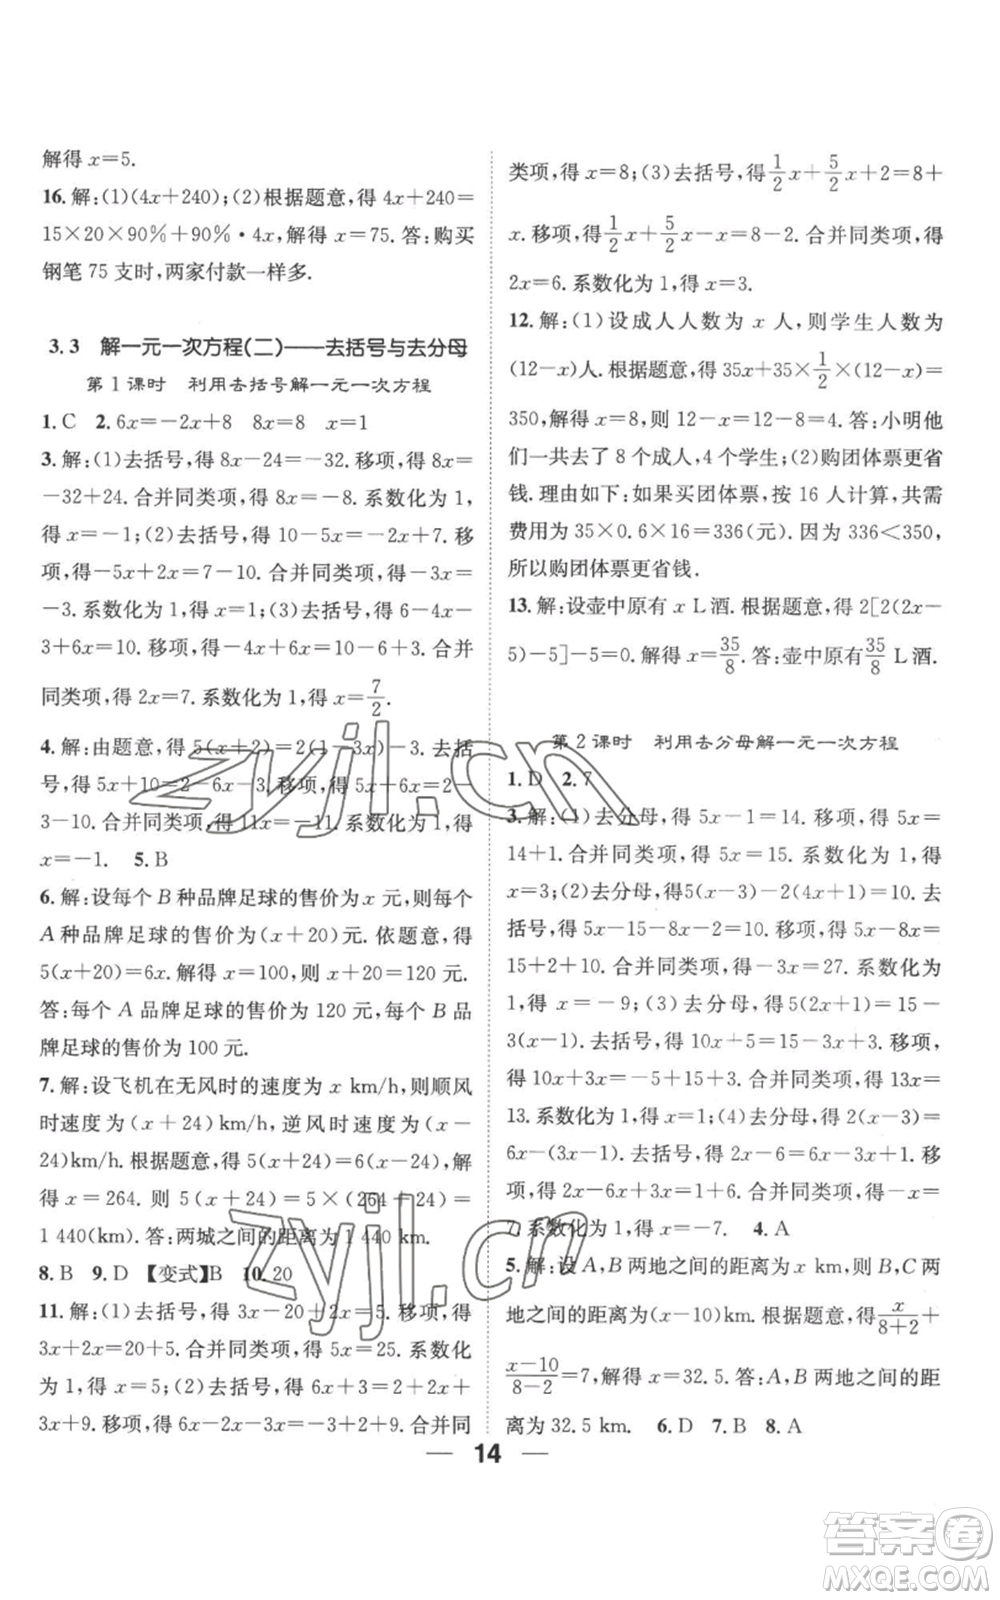 解得 x=5.
16. 解:(1)(4x+240);(2)根据题意,得 4x+240=
15×20×90%+90%·4x,解得 x=75. 答:购买
钢笔 75 支时,两家付款一样多.
3.3 解一元一次方程(二)——去括号与去分母
第 1 课时 利用去括号解一元一次方程
1. C 2. 6x=-2x+8 8x=8 x=1
3. 解:(1)去括号,得 8x-24=-32. 移项,得 8x=
-32+24. 合并同类项,得 8x=-8. 系数化为 1,
得 x=-1;(2)去括号,得 10-5x=-2x+7. 移
项,得-5x+2x=7-10. 合并同类项,得-3x=
-3. 系数化为 1,得 x=1;(3)去括号,得 6-4x-
3+6x=10. 移项,得-4x+6x=10-6+3. 合并
同类项,得 2x=7. 系数化为 1,得 x=7/2.
4. 解:由题意,得 5(x+2)=2(1-3x)-3. 去括
号,得 5x+10=2-6x-3. 移项,得 5x+6x=2-
3-10. 合并同类项,得 11x=-11. 系数化为 1,得
x=-1. 5. B
6. 解:设每个 B 种品牌足球的售价为 x 元,则每个
A 种品牌足球的售价为(x+20)元. 依题意,得
5(x+20)=6x. 解得 x=100,则 x+20=120.
答:每个 A 品牌足球的售价为 120 元,每个 B 品
牌足球的售价为 100 元.
7. 解:设飞机在无风时的速度为 x km/h,则顺风
时速度为(x+24)km/h,逆风时速度为(x-
24)km/h. 根据题意,得 5(x+24)=6(x-24),解
得 x=264. 则 5(x+24)=5×(264+24)=
1 440(km). 答:两城之间的距离为 1 440 km.
8. B 9. D 【变式】B 10. 20
11. 解:(1)去括号,得 3x-20+2x=5. 移项,得
3x+2x=20+5. 合并同类项,得 5x=25. 系数化
为 1,得 x=5;(2)去括号,得-2x+3=2+2x-
3x+9. 移项,得-2x-2x+3x=-3+2+9. 合并同
类项,得 x=8;(3)去括号,得 1/2x+5/2x+2=8+
x. 移项,得 1/2x+5/2x-x=8-2. 合并同类项,得
2x=6. 系数化为 1,得 x=3.
12. 解:(1)设成人人数为 x 人,则学生人数为
(12-x)人. 根据题意,得 35x+35×1/2×(12-x)=
350,解得 x=8,则 12-x=12-8=4. 答:小明他
们一共去了 8 个成人,4 个学生;(2)购团体票更省
钱. 理由如下:如果买团体票,按 16 人计算,共需
费用为 35×0.6×16=336(元). 因为 336<350,
所以购团体票更省钱.
13. 解:设壶中原有 x L 酒. 根据题意,得 2[2(2x-
5)-5]-5=0. 解得 x=35/8. 答:壶中原有 35/8 L 酒.
第 2 课时 利用去分母解一元一次方程
1. D 2. 7
3. 解:(1)去分母,得 5x-1=14. 移项,得 5x=
14+1. 合并同类项,得 5x=15. 系数化为 1,得
x=3;(2)去分母,得5(x-3)-2(4x+1)=10. 去
括号,得 5x-15-8x-2=10. 移项,得 5x-8x=
15+2+10. 合并同类项,得-3x=27. 系数化为
1,得 x=-9;(3)去分母,得 5(2x+1)=15-
3(x-1). 去括号,得 10x+5=15-3x+3. 移项,
得 10x+3x=-5+15+3. 合并同类项,得 13x=
13. 系数化为 1,得 x=1;(4)去分母,得 2(x-3)=
6x-(3x-1). 去括号,得 2x-6=6x-3x+1. 移
项,得 2x-6x+3x=1+6. 合并同类项,得-x=
7. 系数化为 1,得 x=-7. 4. A
5. 解:设 A,B 两地之间的距离为 x km,则 B,C 两
地之间的距离为(x-10)km. 根据题意,得 x/(8+2)+
(x-10)/(8-2)=7,解得 x=32.5. 答:A,B 两地之间的距
离为 32.5 km. 6. D 7. B 8. A
14
zyjl.cn
zyjl.cn
答案圈
MXQE.COM